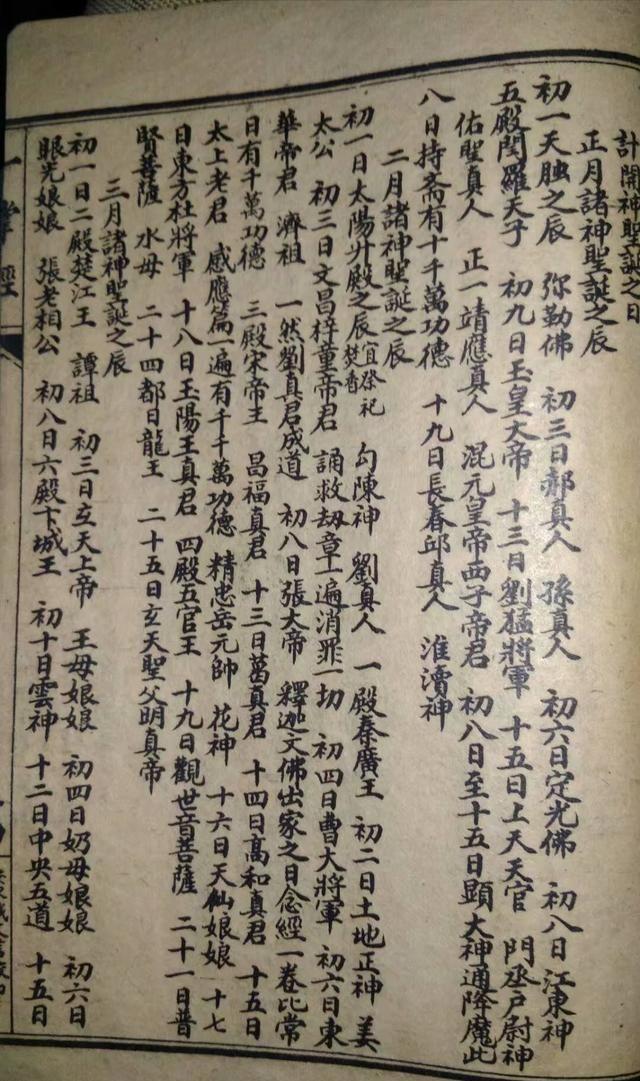 計開神聖誕之日
正月諸神聖誕之辰
初一天腊之辰 弥勒佛 初三日郝真人 孫真人 初六日定光佛 初八日江東神
五殿閻羅天子 初九日玉皇大帝 十三日劉猛將軍 十五日上天天官 門丞戶尉神
佑聖真人 正一靖應真人 混元皇帝西子帝君 初八日至十五日顕大神通降魔此
八日持斋有十千萬功德 十九日長春邱真人 淮瀆神
二月諸神聖誕之辰
初一日太陽升殿之辰宜祭祀焚香 勾陳神 劉真人 一殿秦廣王 初二日土地正神 姜
太公 初三日文昌梓董帝君 誦救刼章一遍消罪一切 初四日曹大將軍 初六日東
華帝君 濟祖 一然劉真君成道 初八日張大帝 釋迦文佛出家之日念經一卷比常
日有千萬功德 三殿宋帝王 昌福真君 十三日葛真君 十四日高和真君 十五日
太上老君 感應篇一遍有千千萬功德 精忠岳元帥 花神 十六日天仙娘娘 十七
日東方杜將軍 十八日玉陽王真君 四殿五官王 十九日觀世音菩薩 二十一日普
賢菩薩 水母 二十四都日龍王 二十五日玄天聖父明真帝
三月諸神聖誕之辰
初一日二殿楚江王 譚祖 初三日玄天上帝 王母娘娘 初四日奶母娘娘 初六日
眼光娘娘 張老相公 初八日六殿卞城王 初十日雲神 十二日中央五道 十五日